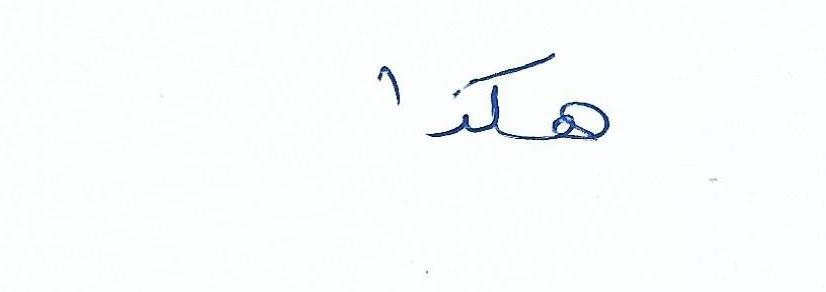 هكذا